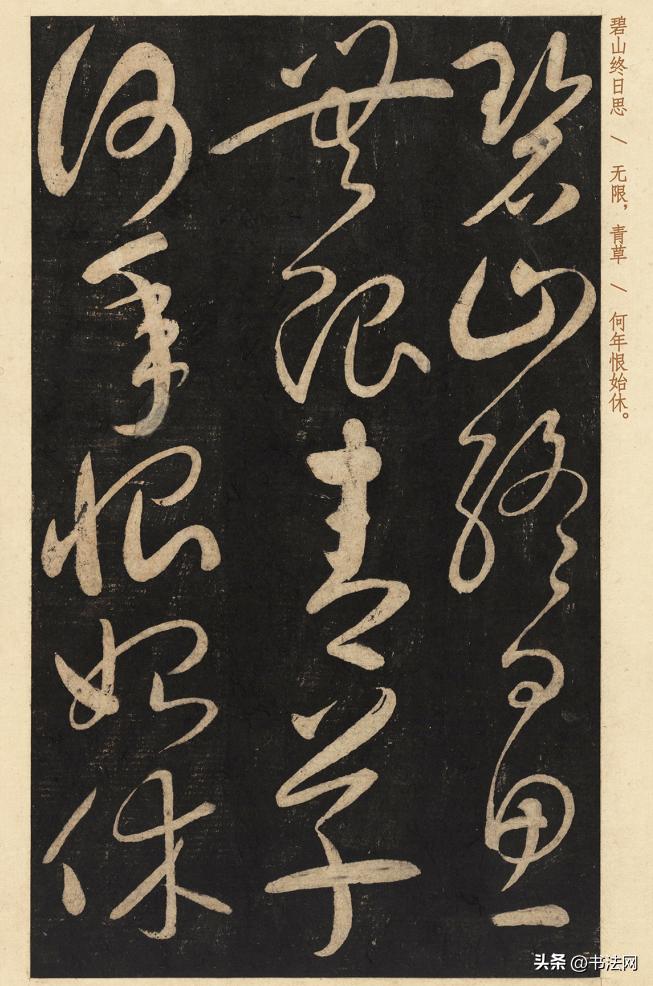 碧山终日思
无限青草
何年恨始休
碧山终日思 \ 无限，青草 \ 何年恨始休。
头条 @书法网